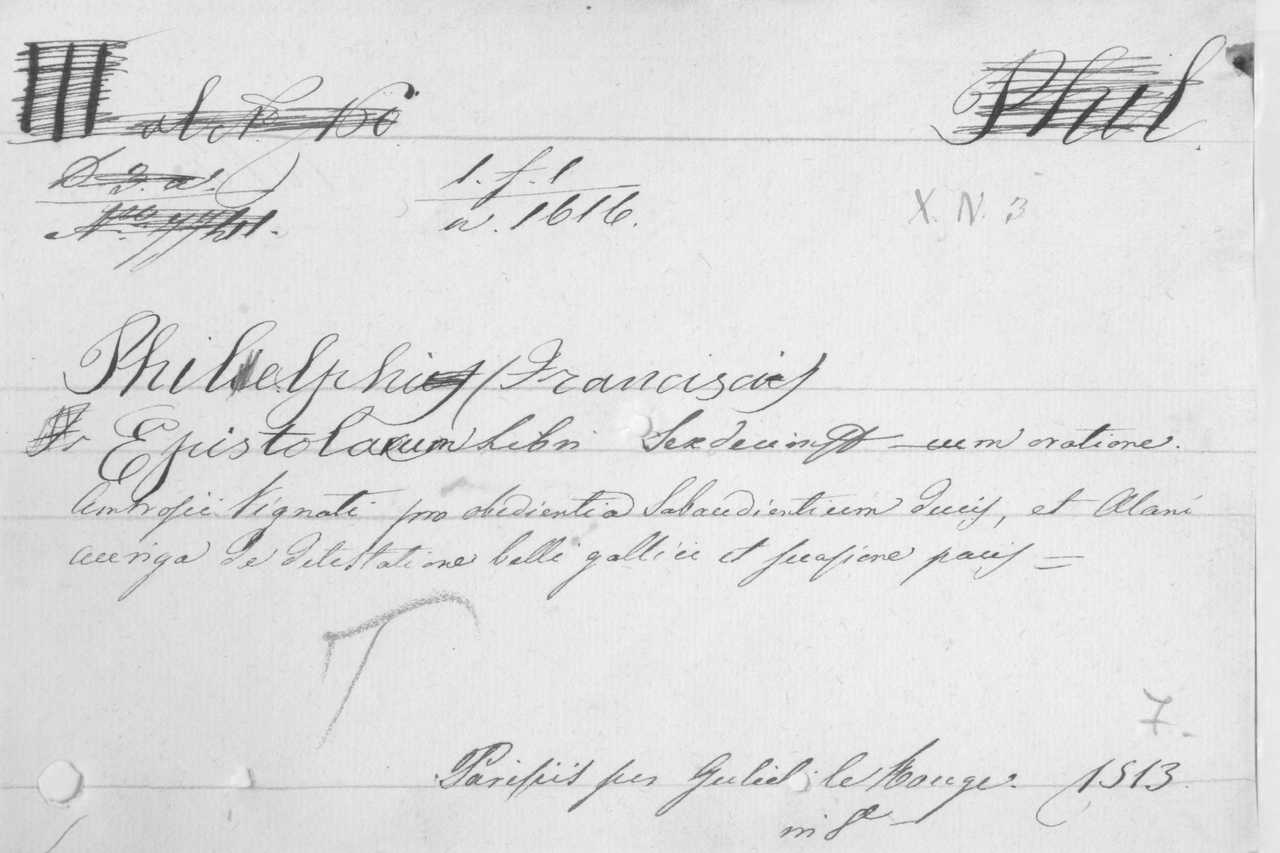 Phil.
1. f. 1
a. 1616.
X. N. 3
Philelphi (Francisci)
Epistolarum Libri Sexdecim cum oratione
Ambrosii Vignati pro obedientia Sabaudientium Ducis, et Alani
auriga de detestatione belli gallici et suasione pacis =
7.
Parisiis per Guliel: le Rouge. 1513.
in 8º